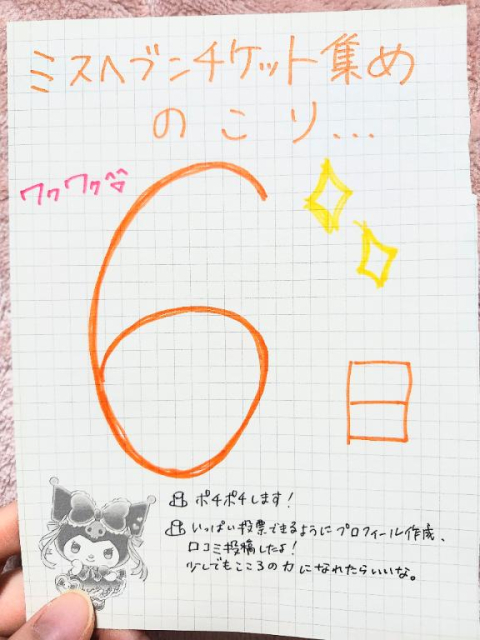 ミスヘブンチケット集め
のこり...
ワクワク
6
日
ポチポチします！
いっぱい投票できるようにプロフィール作成、
口コミ投稿したよ！
少しでもこころの力になれたらいいな。